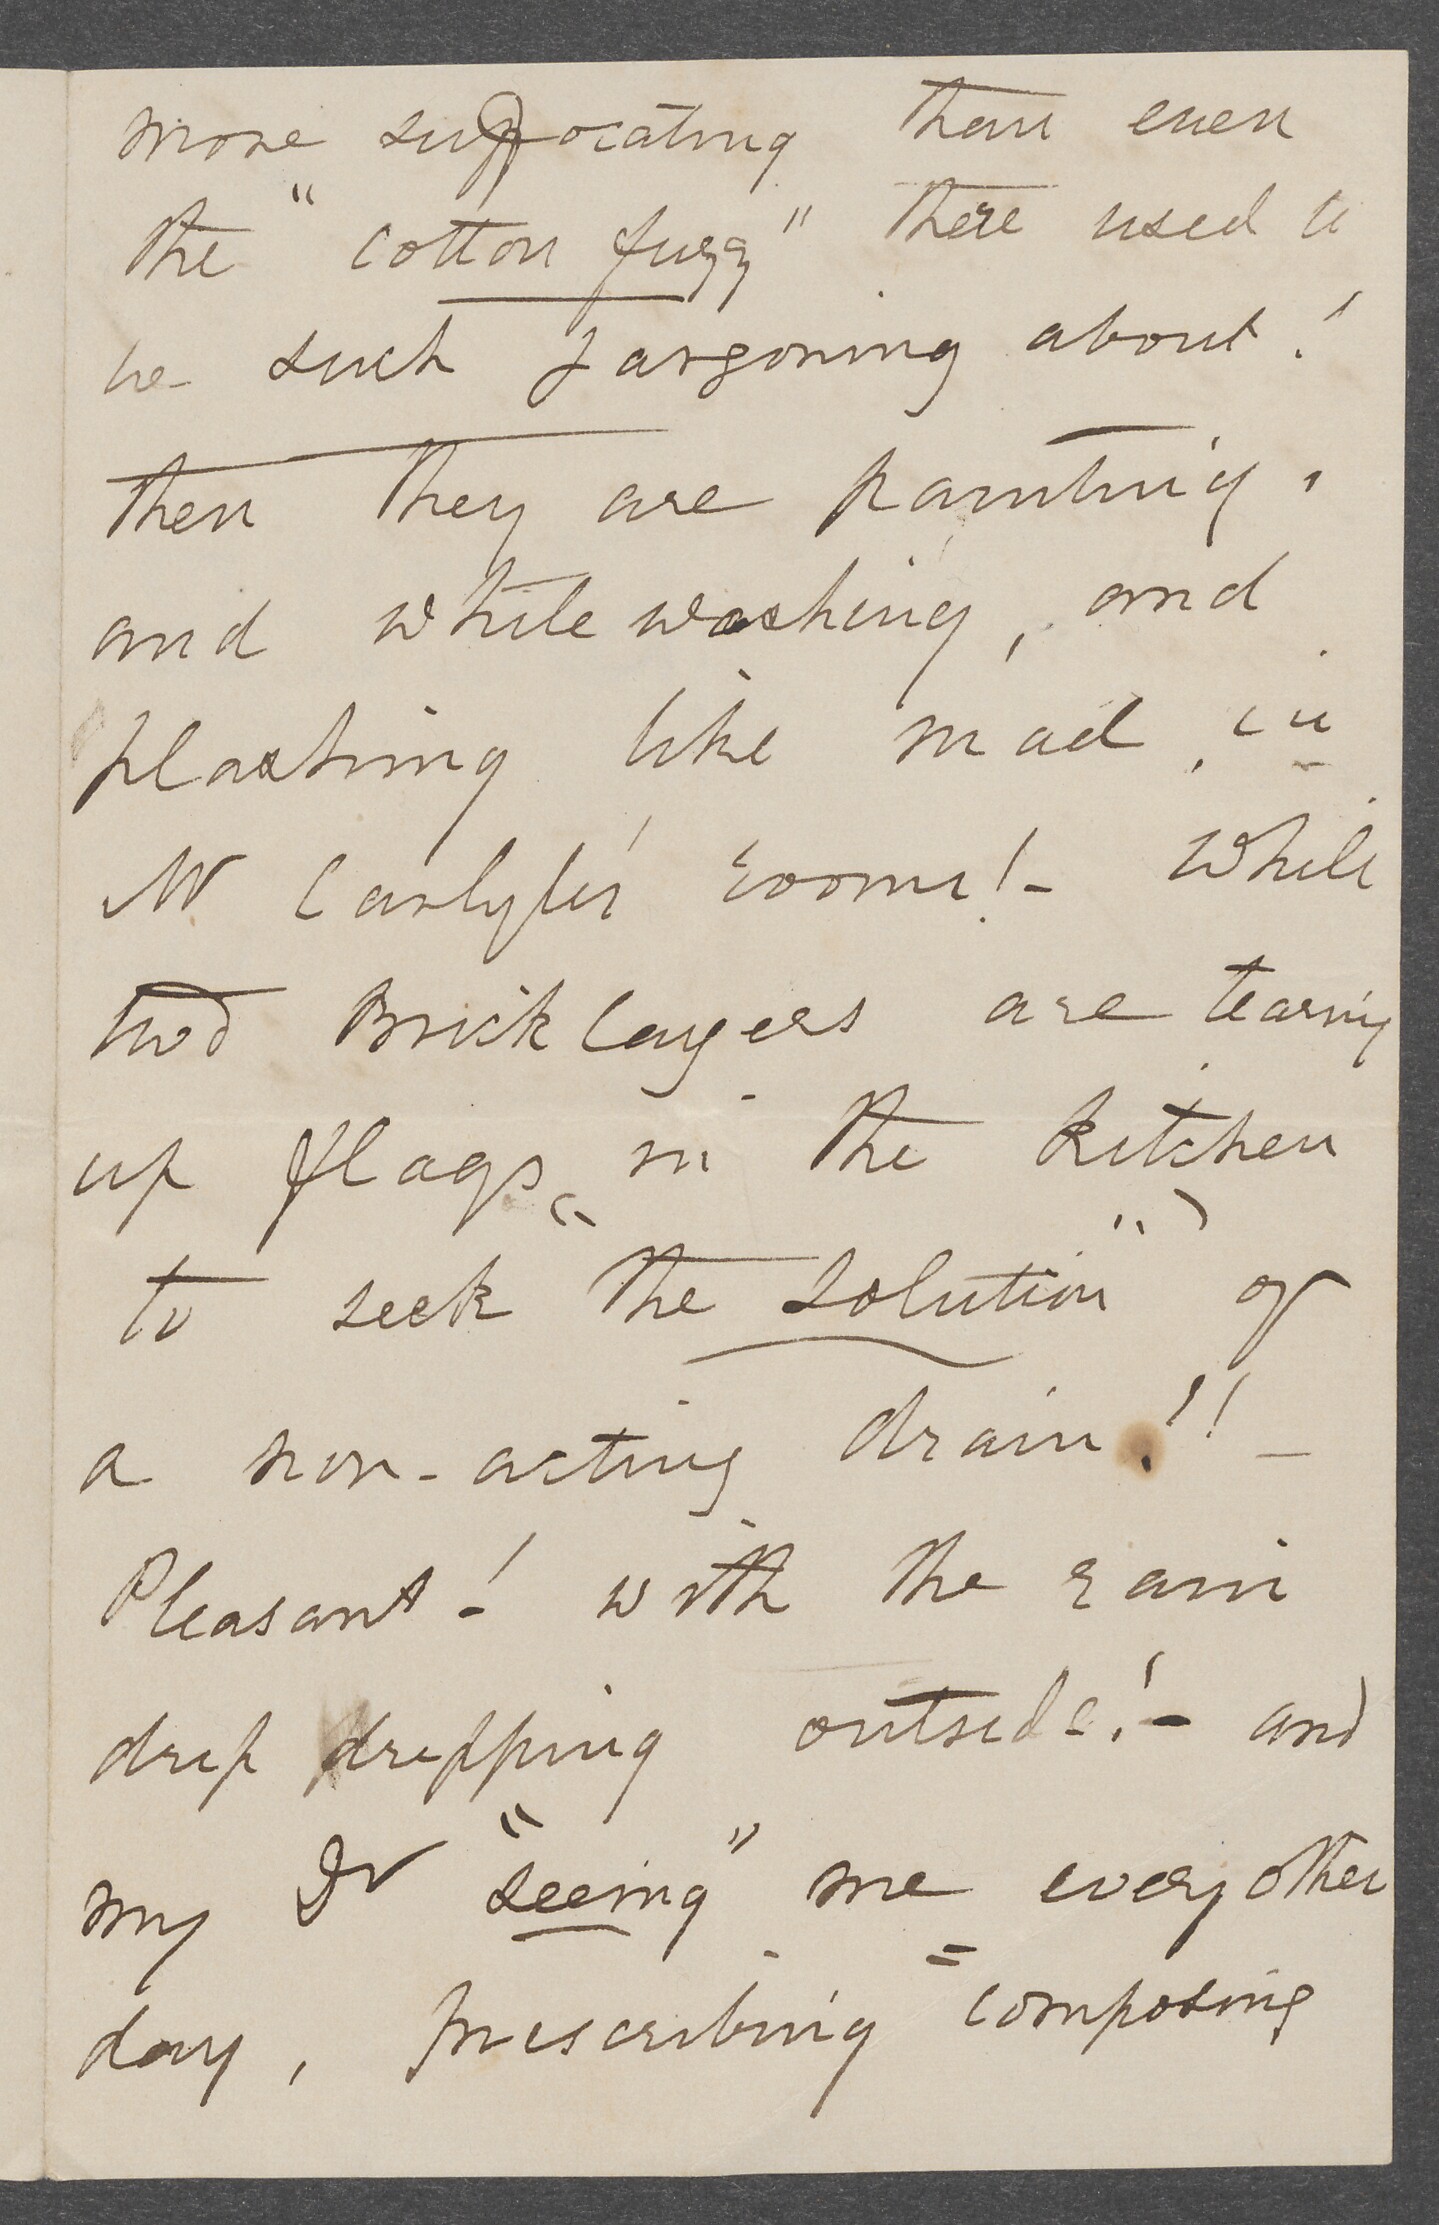 more suffocating than even
the "cotton fuzz" there used to
be such jargoning about!
then they are painting,
and white washing, and
plashing like mad, in
Mr Carlyle's rooms!- while
two Bricklayers are tearing
up flags in the kitchen
to seek "the solution" of
a non-acting drain!! -
Pleasant! with the rain
drip dripping outside!- and
my Dr "seeing" me every other
day, prescribing "composing